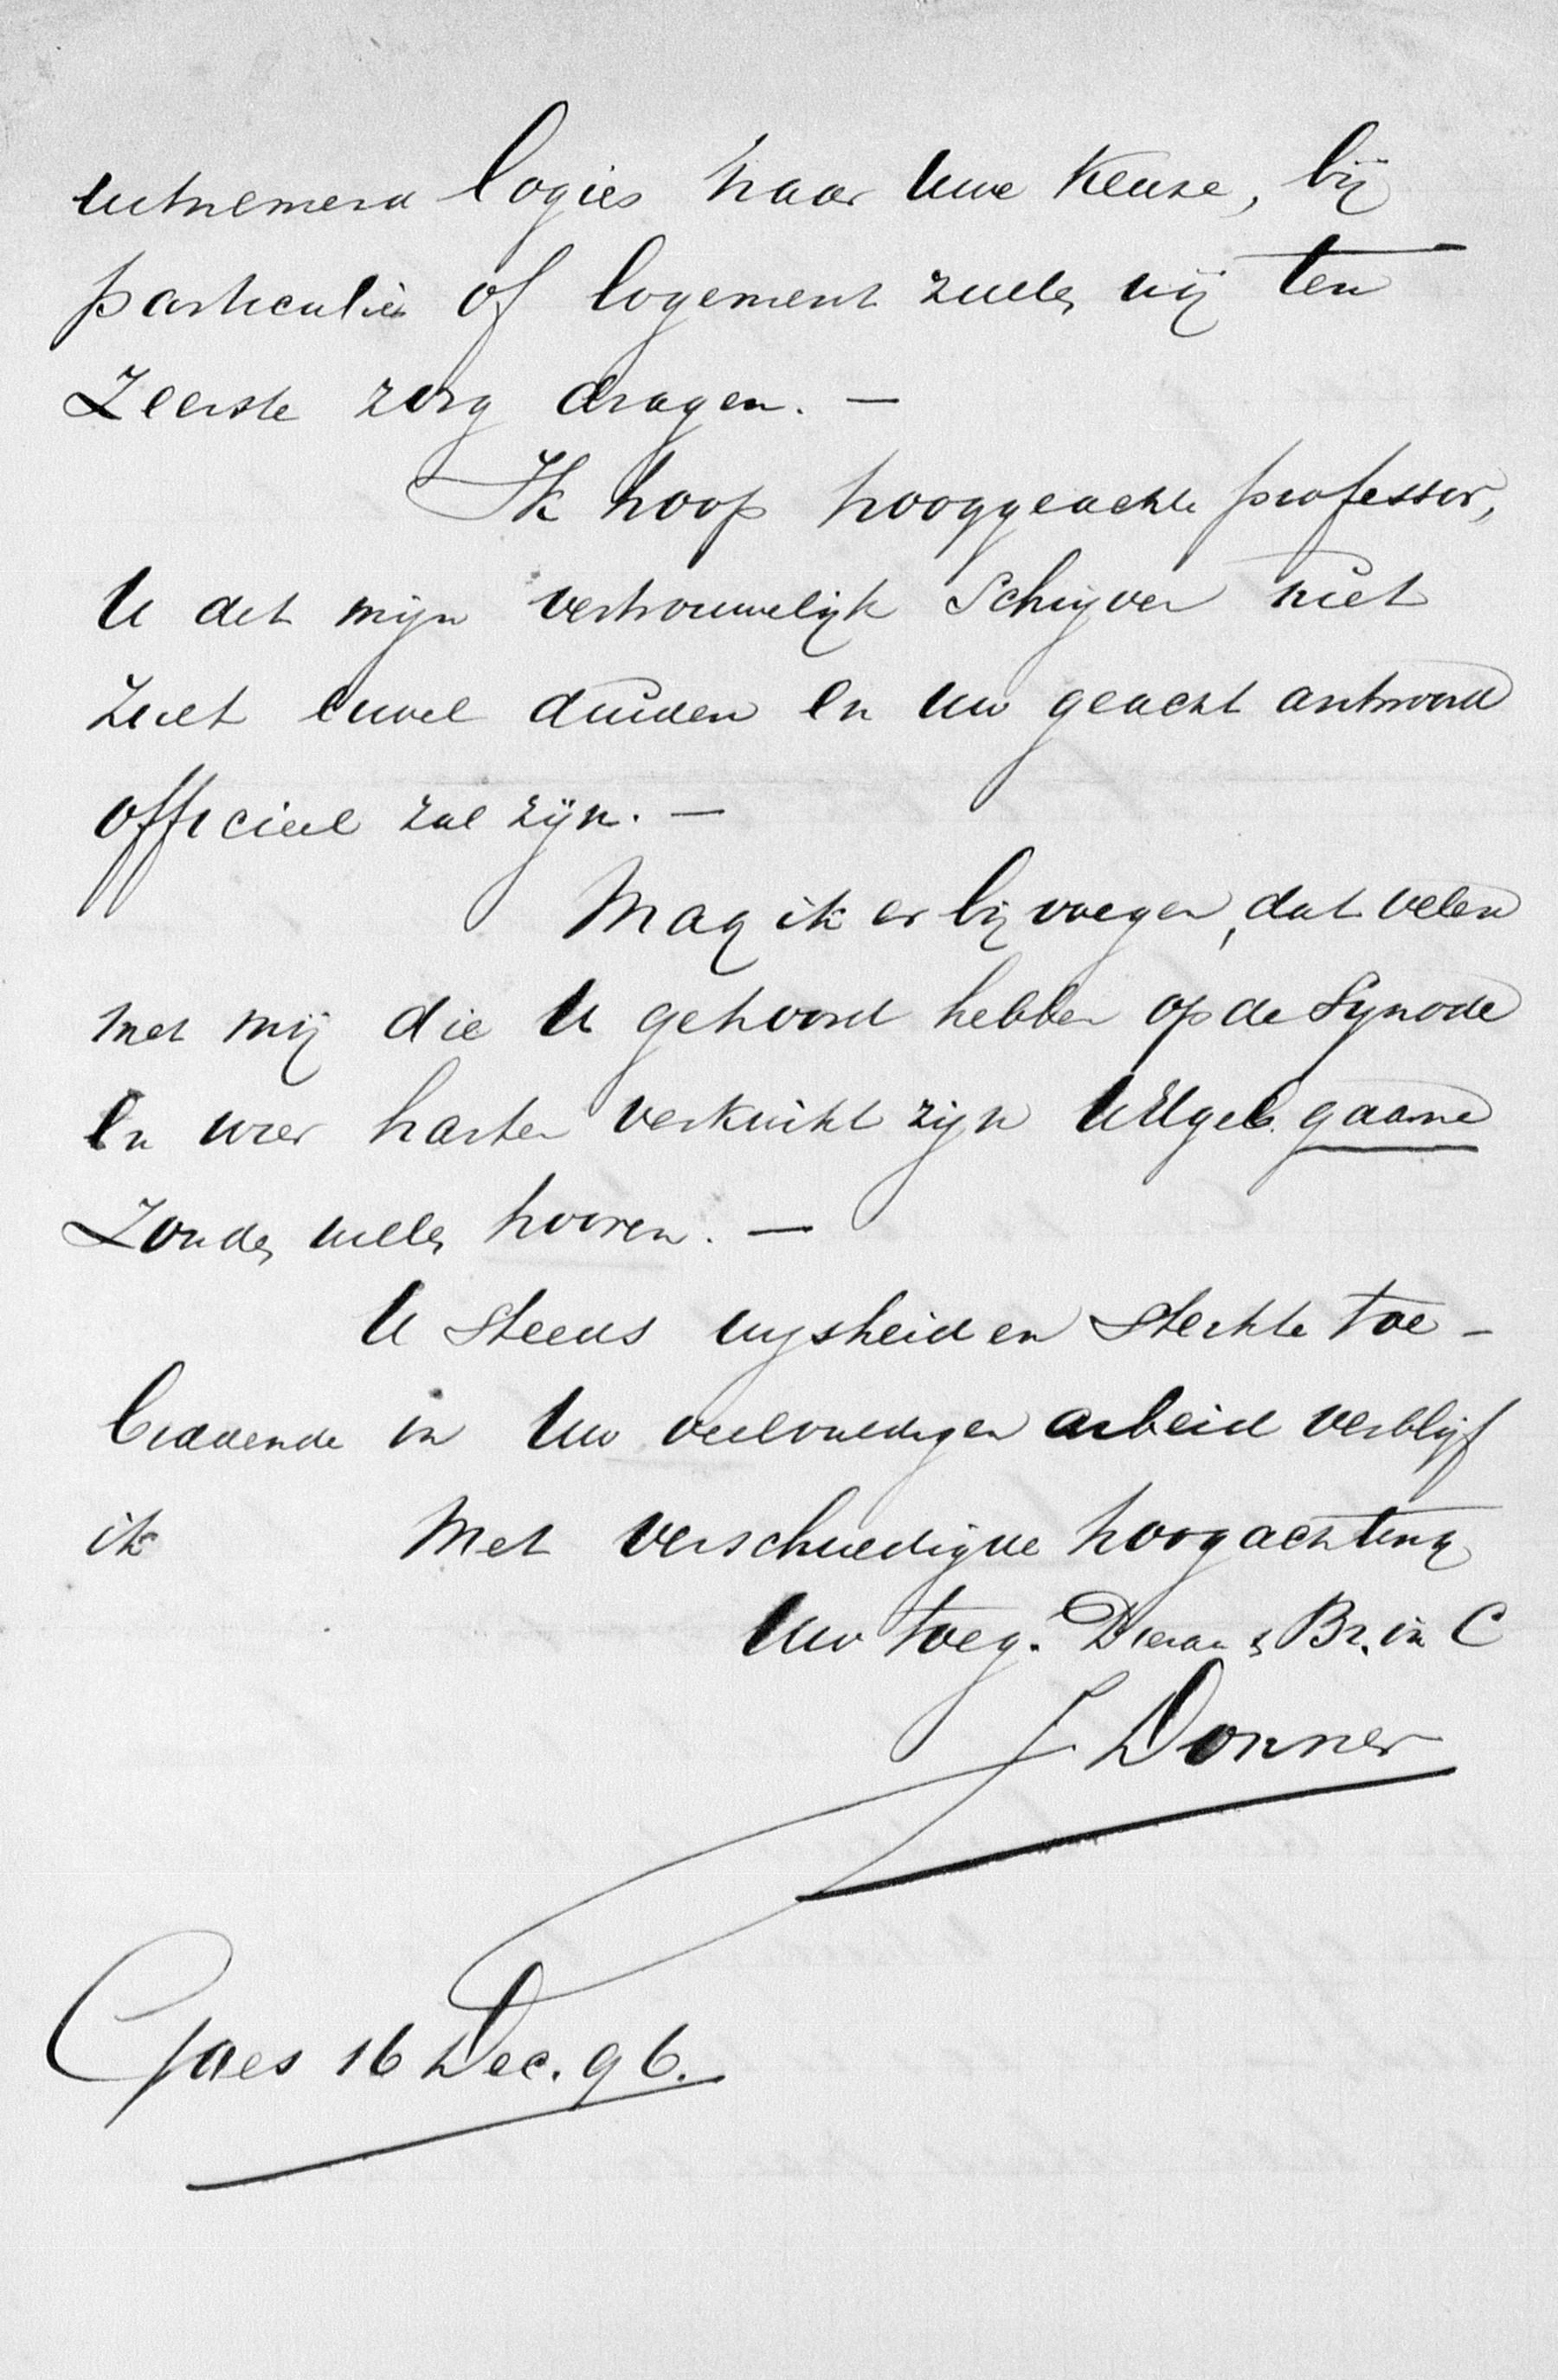 uitnemend logies naar Uwe Keuze, bij
particulier of logement zullen wij ten
Zeerste zorg dragen. —
Ik hoop hooggeachte professor,
U dat mijn vertrouwelijk Schrijven niet
Zult euvel duiden en Uw geacht antwoord
officieel zal zijn. —
Mag ik er bij voegen, dat velen
met mij die U gehoord hebben op de Synode
en wier harten verkwikt zijn UEdgeb. gaarne
Zouden willen hooren. —
U steeds wijsheid en sterkte toe-
biddende in Uw veelvuldigen arbeid verblijf
ik Met verschuldigde hoogachting
Uw toeg. Dienaar & Br. in C
J Donner
Goes 16 Dec. 96.